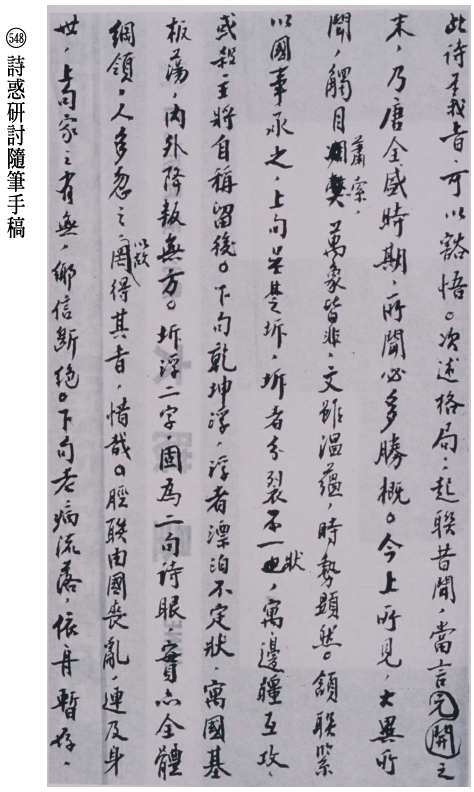 548 詩惑研討隨筆手稿
此詩至我旨,可以豁悟。次述格局:起聯昔聞,當言完開之
末,乃唐全盛時期,所聞必多勝概。今上所見,大異所
聞,觸目蕭索,萬象皆非,文雖溫蘊,時勢顯然。頷聯緊
以國事承之,上句吳楚坼,坼者分裂不一狀,寓邊疆互攻,
或殺主將自稱留後。下句乾坤浮,浮者漂泊不定狀,寓國基
板蕩,內外降叛無方。坼浮二字,固為二句詩眼,實亦全體
綱領,人多忽之,以故罔得其旨,惜哉。脛聯由國喪亂,連及身
世,上句家之有無,鄉信斷絕。下句老病流落,依舟暫存,